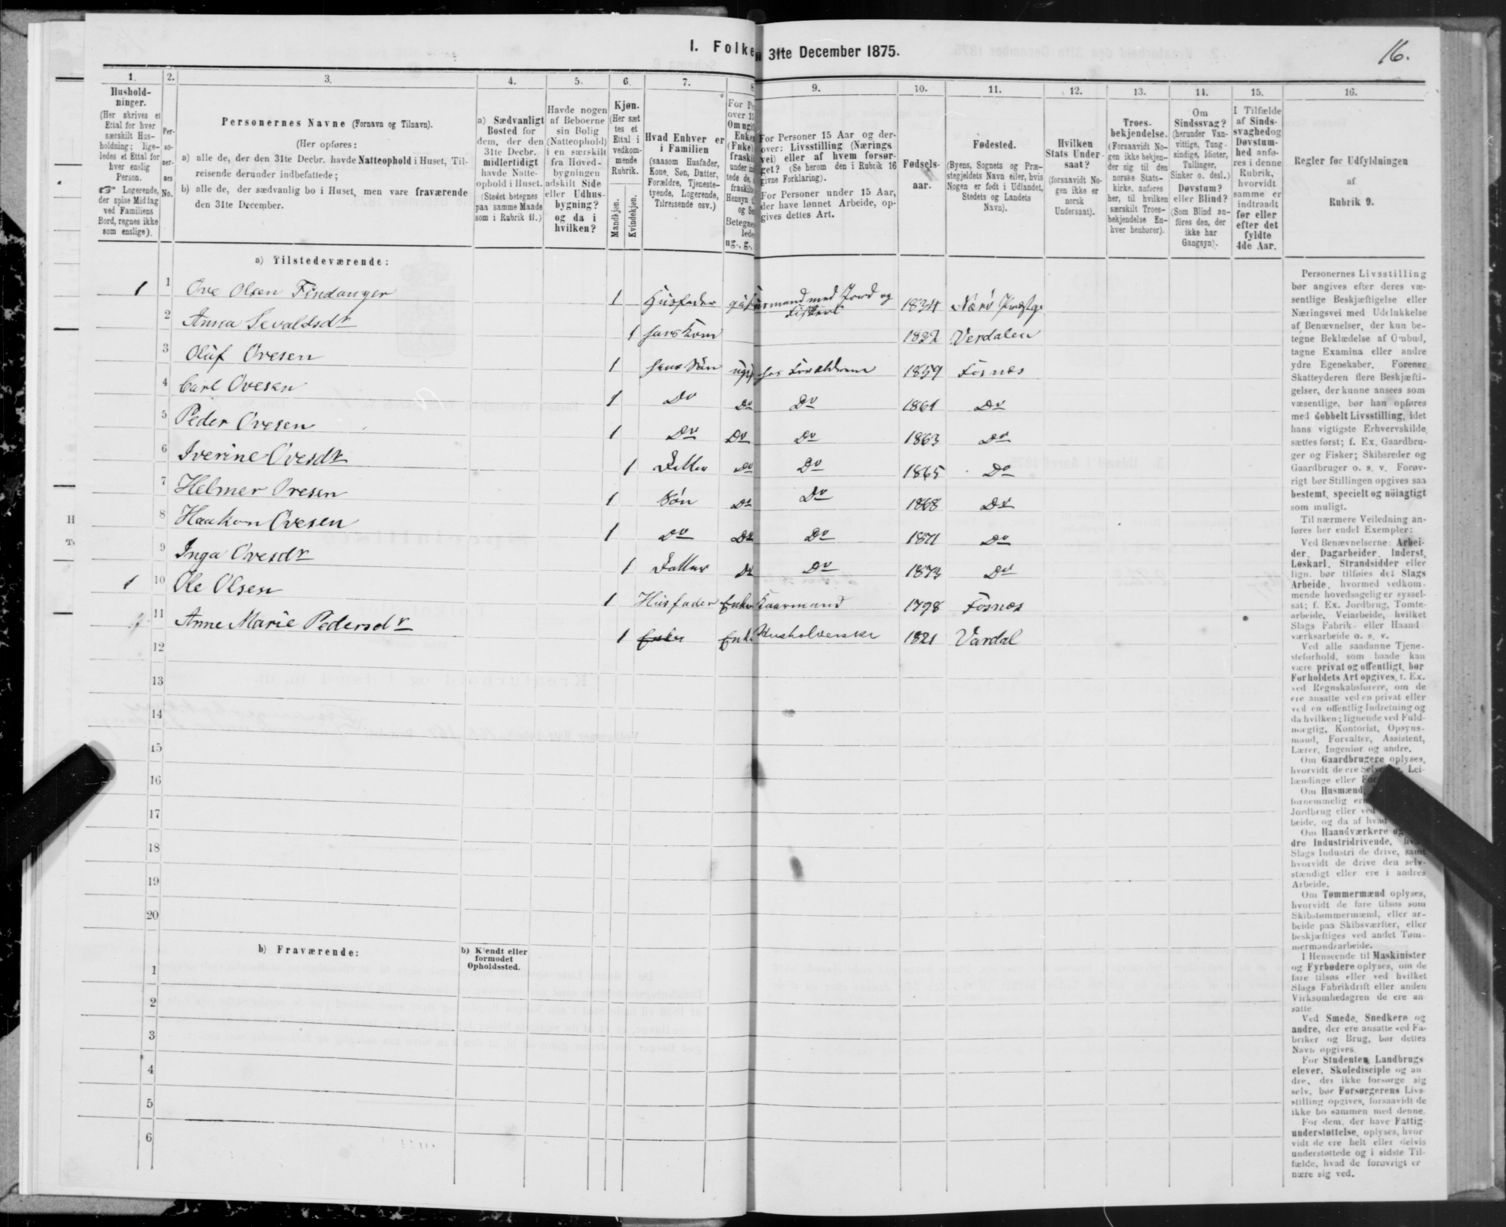 I. Folke
31te December 1875.
16.
1. 2. 3. 4. 5. 6. 7. 8 9. 10. 11. 12. 13. 14. 15. 16.
Hushold-
ninger.
(Her skrives et
Ettal for hver
særskilt Hus-
holdning; lige-
ledes et Ettal for
hver enslig
Person.
☞ Logerende,
der spise Middag
ved Familiens
Bord, regnes ikke
som enslige).
Per-
so-
ner-
nes
No.
Personernes Navne (Fornavn og Tilnavn).
(Her opføres:
a) alle de, der den 31te Decbr. havde Natteophold i Huset, Til-
reisende derunder indbefattede;
b) alle de, der sædvanlig bo i Huset, men vare fraværende
den 31te December.
a) Sædvanligt
Bosted for
dem, der den
31te Decbr.
midlertidigt
havde Natte-
ophold i Huset.
(Stedet betegnes
paa samme Maade
som i Rubrik 11.)
Havde nogen
af Beboerne
sin Bolig
(Natteophold)
i en særskilt
fra Hoved-
bygningen
adskilt Side
eller Udhus-
bygning?
og da i
hvilken?
Kjøn.
(Her sæt-
tes et
Ettal i
vedkom-
mende
Rubrik.
Mandkjøn.
Kvindekjøn.
Hvad Enhver er
i Familien
(saasom Husfader,
Kone, Søn, Datter,
Forældre, Tjeneste-
tyende, Logerende,
Tilreisende osv.)
For Personer 15 Aar og der-
over: Livsstilling (Nærings
vei) eller af hvem forsør-
get? (Se herom den i Rubrik 16
givne Forklaring).
For Personer under 15 Aar,
der have lønnet Arbeide, op-
gives dettes Art.
Fødsels-
aar.
Fødested.
(Byens, Sognets og Præ-
stegjeldets Navn eller, hvis
Nogen er født i Udlandet,
Stedets og Landets
Navn).
Hvilken
Stats Under-
saat?
(forsaavidt No-
gen ikke er
norsk
Undersaat).
Troes-
bekjendelse.
(Forsaavidt No-
gen ikke bekjen-
der sig til den
norske Stats-
kirke, anføres
her, til hvilken
særskilt Troes-
bekjendelse En-
hver henhører).
Om
Sindssvag?
(herunder Van-
vittige, Tung-
sindige, Idioter,
Tullinger,
Sinker o. desl.)
Døvstum?
eller Blind?
(Som Blind an-
føres den, der
ikke har
Gangsyn).
I Tilfælde
af Sinds-
svaghed og
Døvstum-
hed anfø-
res i denne
Rubrik,
hvorvidt
samme er
indtraadt
før eller
efter det
fyldte
4de Aar.
Regler for Udfyldningen
af
Rubrik 9.
a) Tilstedeværende:
1 1 Ove Olsen Findanger 1 Husfader gift Husmand med Jord og Fiskeri 1834 Nærø Præstgj
2 Anna Sevaldsdr 1 hans Kone 1832 Verdalen
3 Oluf Ovesen 1 hans Søn ugift hos Forældrene 1859 Fosnæs
4 Carl Ovesen 1 Do Do Do 1861 Do
5 Peder Ovesen 1 Do Do Do 1863 Do
6 Iverine Ovesdr 1 Datter Do Do 1865 Do
7 Helmer Ovesen 1 Søn Do Do 1868 Do
8 Haakon Ovesen 1 Do Do Do 1871 Do
9 Inga Ovesdr 1 Datter Do Do 1873 Do
1 10 Ole Olsen 1 Husfader Enke Kaarmand 1798 Fosnæs
11 Anne Marie Pedersdr 1 Enke Husholderske 1821 Vardal
12
13
14
15
16
17
18
19
20
b) Fraværende:
b) Kjendt eller
formodet
Opholdssted.
1
2
3
4
5
6
Personernes Livsstilling
bør angives efter deres væ-
sentlige Beskjæftigelse eller
Næringsvei med Udelukkelse
af Benævnelser, der kun be-
tegne Beklædelse af Ombud,
tagne Examina eller andre
ydre Egenskaber. Forener
Skatteyderen flere Beskjæfti-
gelser, der kunne ansees som
væsentlige, bør han opføres
med dobbelt Livsstilling, idet
hans vigtigste Erhvervskilde
sættes først; f. Ex. Gaardbru-
ger og Fisker; Skibsreder og
Gaardbruger o. s. v. Forøv-
rigt bør Stillingen opgives saa
bestemt, specielt og nøiagtigt
som muligt.
Til nærmere Veiledning an-
føres her endel Exempler:
Ved Benævnelserne: Arbei-
der, Dagarbeider, Inderst,
Løskarl, Strandsidder eller
lign. bør tilføies det Slags
Arbeide, hvormed vedkom-
mende hovedsagelig er syssel-
sat; f. Ex. Jordbrug, Tomte-
arbeide, Veiarbeide, hvilket
Slags Fabrik- eller Haand-
værksarbeide o. s. v.
Ved alle saadanne Tjene-
steforhold, som baade kan
være privat og offentligt, bør
Forholdets Art opgives, t. Ex.
ved Regnskabsførere, om de
ere ansatte ved en privat eller
ved en offentlig Indretning og
da hvilken; lignende ved Fuld-
mægtig, Kontorist, Opsyns-
mand, Forvalter, Assistent,
Lærer, Ingeniør og andre.
Om Gaardbrugere oplyses,
hvorvidt de ere Lei-
lændinge eller
Om Husmænd
fornemmelig
Jordbrug eller
beide, og da af hvad
Om Haandværkere
dre Industridrivende,
Slags Industri de drive, samt
hvorvidt de drive den selv-
stændigt eller ere i andres
Arbeide.
Om Tømmermænd oplyses,
hvorvidt de fare tilsøs som
Skibstømmermænd, eller ar-
beide paa Skibsværfter, eller
beskjæftiges ved andet Tøm-
mermandsarbeide.
I Henseende til Maskinister
og Fyrbødere oplyses, om de
fare tilsøs eller ved hvilket
Slags Fabrikdrift eller anden
Virksomhedsgren de ere an-
satte
Ved Smede, Snedkere og
andre, der ere ansatte ved Fa-
briker og Brug, bør dettes
Navn opgives.
For Studenter, Landbrugs-
elever, Skoledisciple og an-
dre, der ikke forsørge sig
selv, bør Forsørgerens Livs-
stilling opgives, forsaavidt de
ikke bo sammen med denne.
For dem, der have Fattig-
understøttelse, oplyses, hvor-
vidt de ere helt eller delvis
understøttede og i sidste Til-
fælde, hvad de forøvrigt er-
nære sig ved.